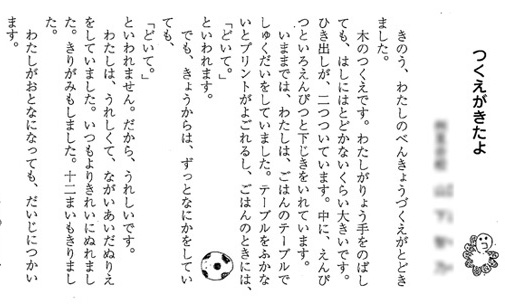 つくえがきたよ
きのう、わたしのべんきょうづくえがとどき
ました。
木のつくえです。わたしがりょう手をのばし
ても、はしにはとどかないくらい大きいです。
ひき出しが、二つついています。中に、えんぴ
つといろえんぴつと下じきをいれています。
いままでは、わたしは、ごはんのテーブルで
しゅくだいをしていました。テーブルをふかな
いとプリントがよごれるし、ごはんのときには、
「どいて。」
といわれます。
でも、きょうからは、ずっとなにかをしてい
ても、
「どいて。」
といわれません。だから、うれしいです。
わたしは、うれしくて、ながいあいだぬりえ
をしていました。いつもよりきれいにぬれまし
た。きりがみもしました。十二まいもきりまし
た。
わたしがおとなになっても、だいじにつかい
ます。